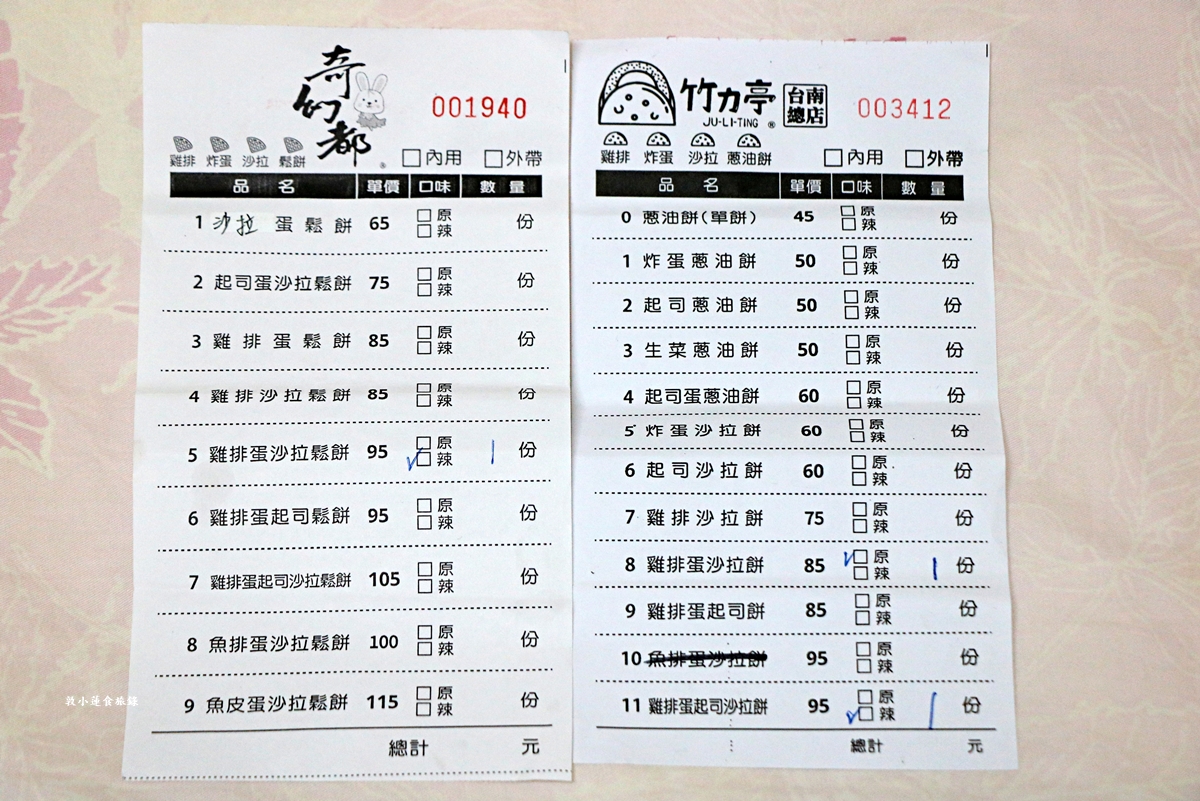 奇幻都
001940
雞排 炸蛋 沙拉 鬆餅 ® □內用 □外帶
品名 單價 口味 數量
1 沙拉 蛋鬆餅 65 □原 □辣 份
2 起司蛋沙拉鬆餅 75 □原 □辣 份
3 雞排蛋鬆餅 85 □原 □辣 份
4 雞排沙拉鬆餅 85 □原 □辣 份
5 雞排蛋沙拉鬆餅 95 □原 ☑辣 1 份
6 雞排蛋起司鬆餅 95 □原 □辣 份
7 雞排蛋起司沙拉鬆餅 105 □原 □辣 份
8 魚排蛋沙拉鬆餅 100 □原 □辣 份
9 魚皮蛋沙拉鬆餅 115 □原 □辣 份
總計 元
竹力亭 ®
JU-LI-TING
台南
總店
003412
雞排 炸蛋 沙拉 蔥油餅 □內用 □外帶
品名 單價 口味 數量
0 蔥油餅(單餅) 45 □原 □辣 份
1 炸蛋蔥油餅 50 □原 □辣 份
2 起司蔥油餅 50 □原 □辣 份
3 生菜蔥油餅 50 □原 □辣 份
4 起司蛋蔥油餅 60 □原 □辣 份
5 炸蛋沙拉餅 60 □原 □辣 份
6 起司沙拉餅 60 □原 □辣 份
7 雞排沙拉餅 75 □原 □辣 份
8 雞排蛋沙拉餅 85 ☑原 □辣 1 份
9 雞排蛋起司餅 85 □原 □辣 份
10 魚排蛋沙拉餅 95 □原 □辣 份
11 雞排蛋起司沙拉餅 95 □原 ☑辣 1 份
總計 元
敦小蓮食旅錄